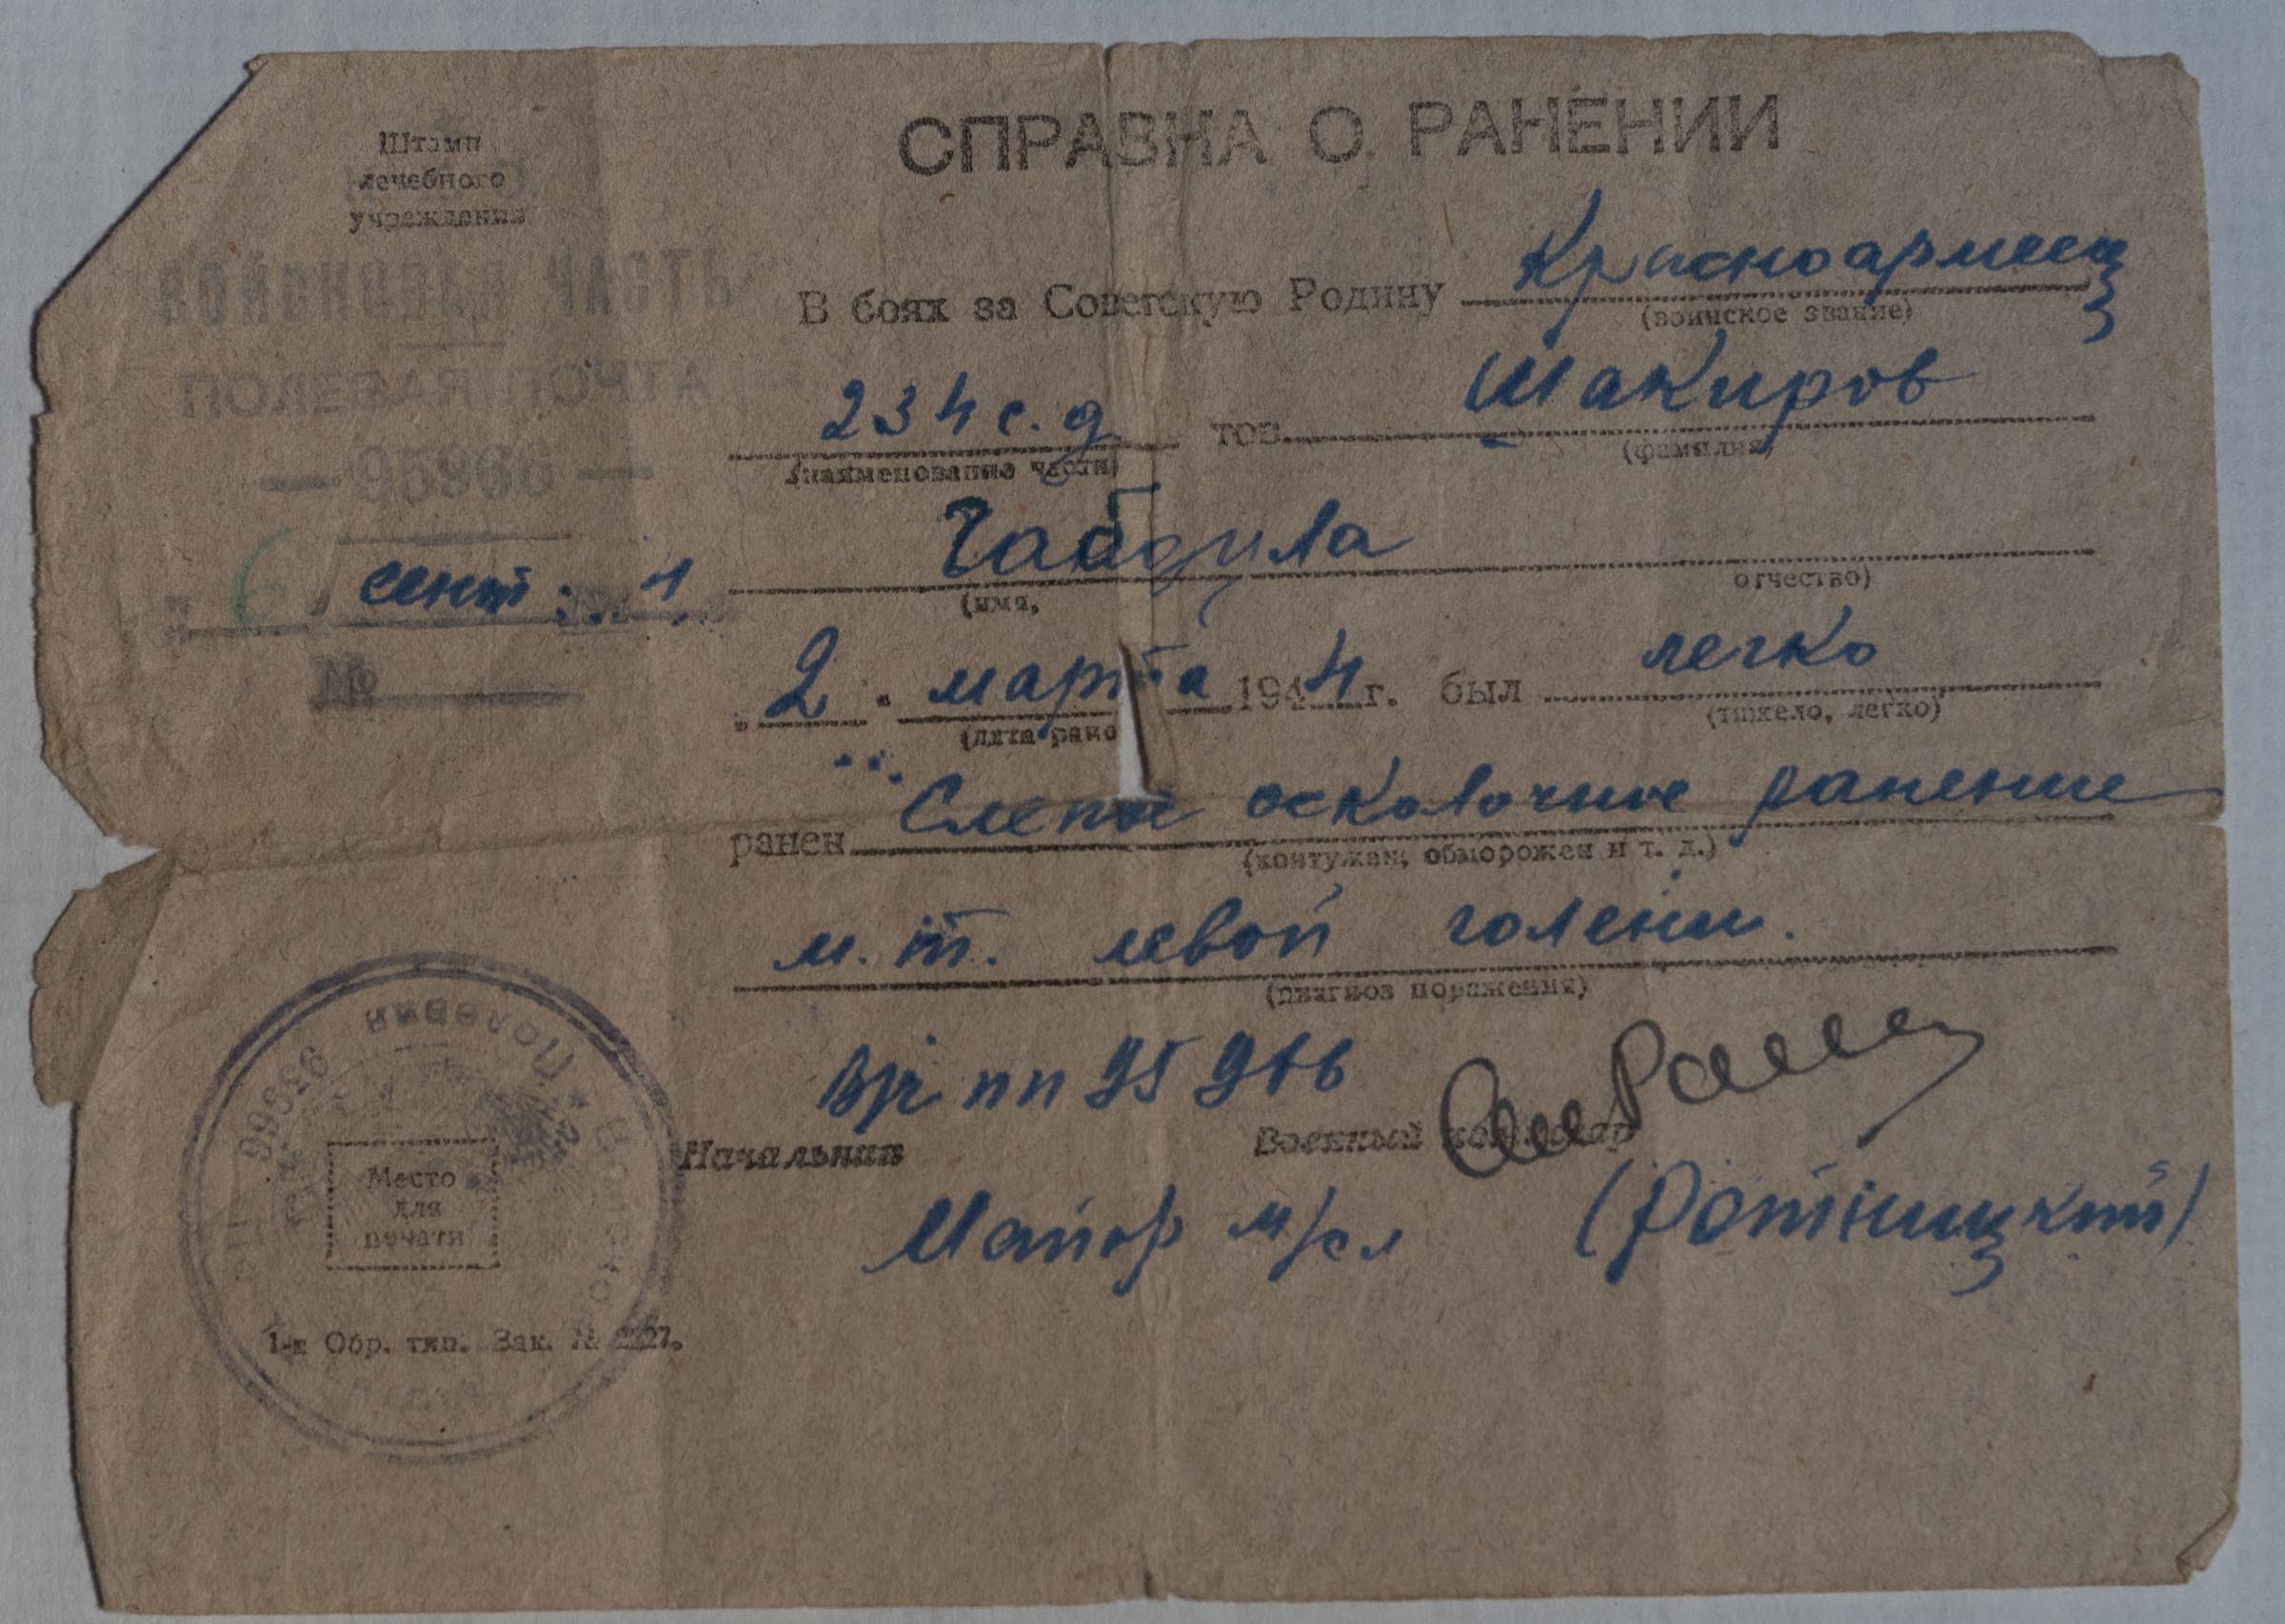 Штамп
лечебного
учреждения
ВОЙСКОВАЯ ЧАСТЬ
ПОЛЕВАЯ ПОЧТА
— 95966 —
" 6 " сент. 4
№
СПРАВКА О РАНЕНИИ
В боях за Советскую Родину Красноармеец
(воинское звание)
234 с.д. тов. Шакиров
(наименование части) (фамилия)
Габдула
(имя, отчество)
" 2 " марта 1944 г. был легко
(дата ране (тяжело, легко)
ранен Слепое осколочное ранение
(контужен, обморожен и т. д.)
м.т. левой голени.
(диагноз поражения)
пп 95966
Начальник Военный комиссар
Майор м/сл (Ротницкий)
Полевая 95966
Место
для
печати
1-я Обр. тип. Зак. №